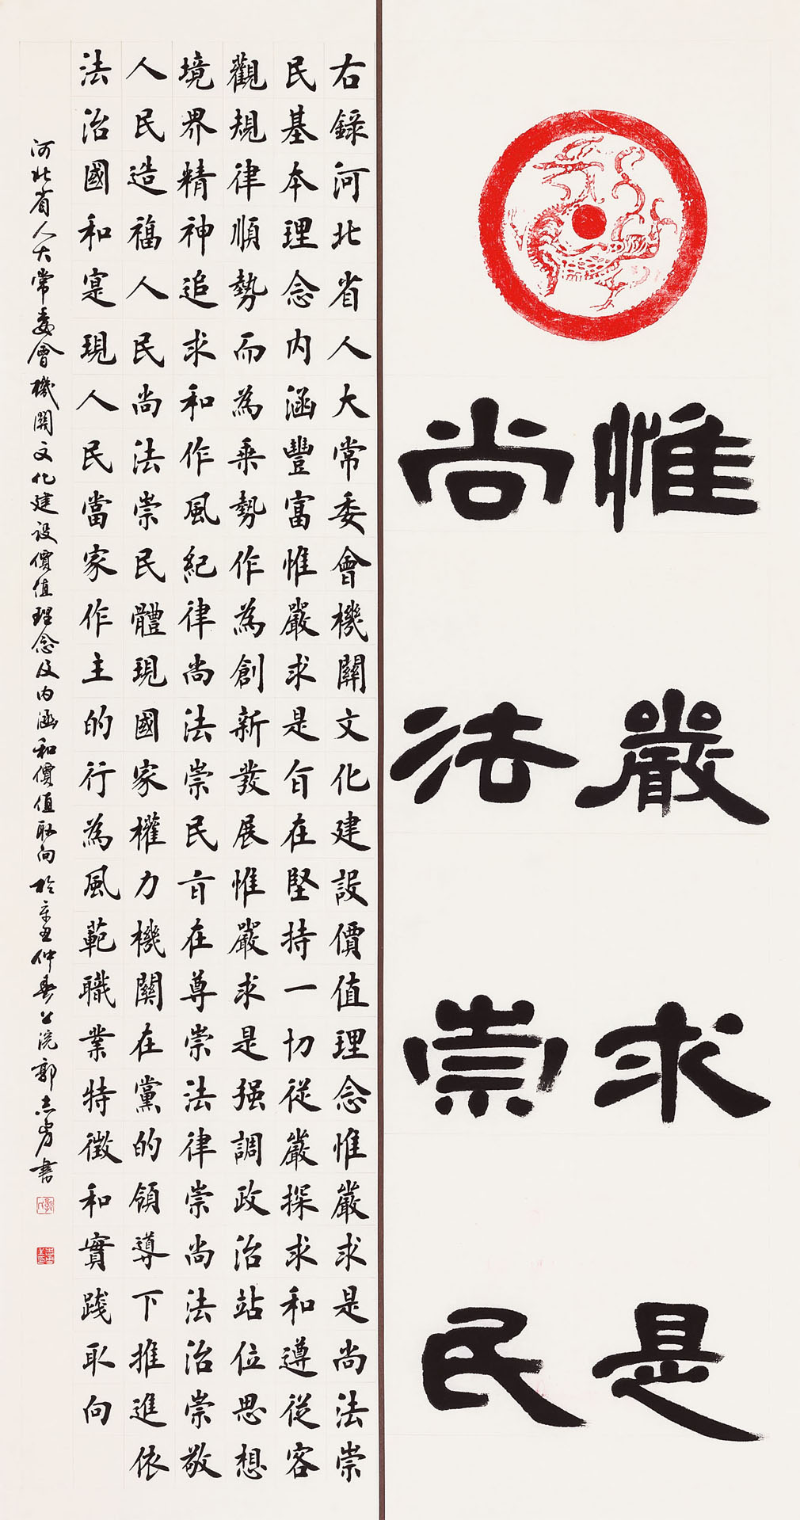 惟嚴求是
尚法崇民
右錄河北省人大常委會機關文化建設價值理念惟嚴求是尚法崇
民基本理念内涵豐富惟嚴求是旨在堅持一切從嚴探求和遵從客
觀規律順勢而為乘勢作為創新發展惟嚴求是强調政治站位思想
境界精神追求和作風紀律尚法崇民旨在尊崇法律崇尚法治崇敬
人民造福人民尚法崇民體現國家權力機關在黨的領導下推進依
法治國和寔現人民當家作主的行為風範職業特徵和實踐取向
河北省人大常委會機關文化建設價值理念及内涵和價值取向於辛丑仲春上浣郭志書